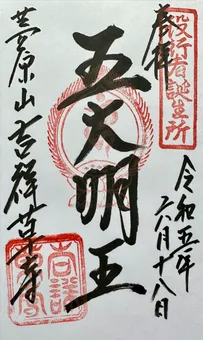 役行者誕生所
奉拝
令和五年
六月十八日
五大明王
茅原山 吉祥草寺